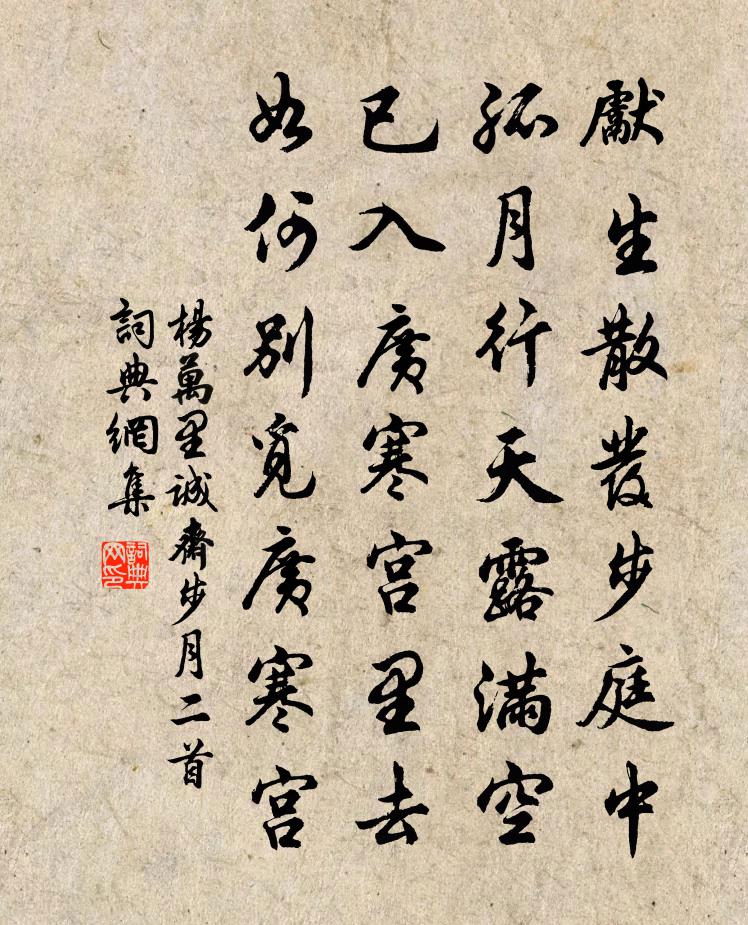 獻生散發步庭中
孤月行天露滿空
已入廣寒宫里去
如何别覓廣寒宫
楊萬里誠齋步月二首
詞典網集
詞典
网印